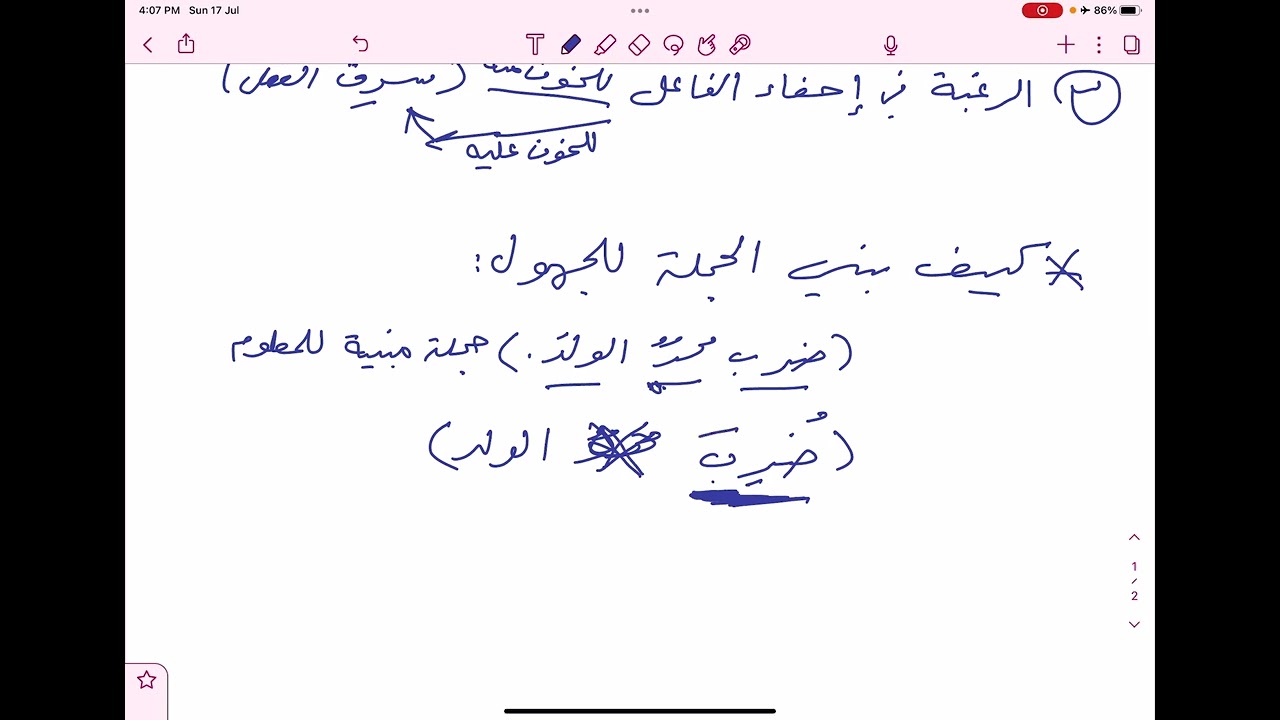 4:07 PM Sun 17 Jul
86%
٣) الرغبة في إخفاء الفاعل للخوف منه (سرق العمل)
للخوف عليه
* كيف نبني الجملة للمجهول:
(ضرب محمدٌ الولدَ.) جملة مبنية للمعلوم
(ضُرِبَ الولد)
1
/
2